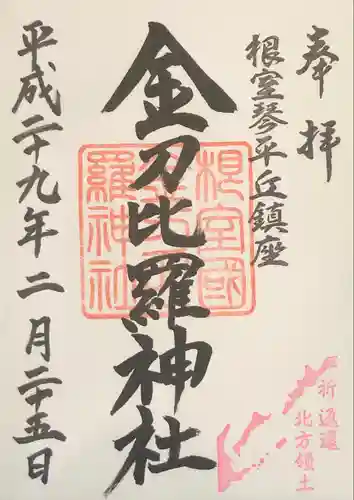 奉拝
根室琴平丘鎮座
金刀比羅神社
平成二十九年二月二十五日
根室國
金刀比
羅神社
祈返還
北方領土